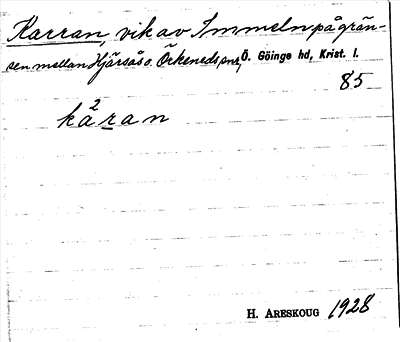 Karran, vik av Immeln på grän-
sen mellan Hjärsås o. Örkeneds snr, Ö. Göinge hd, Krist. l.
85
kå²ran
H. ARESKOUG 1928